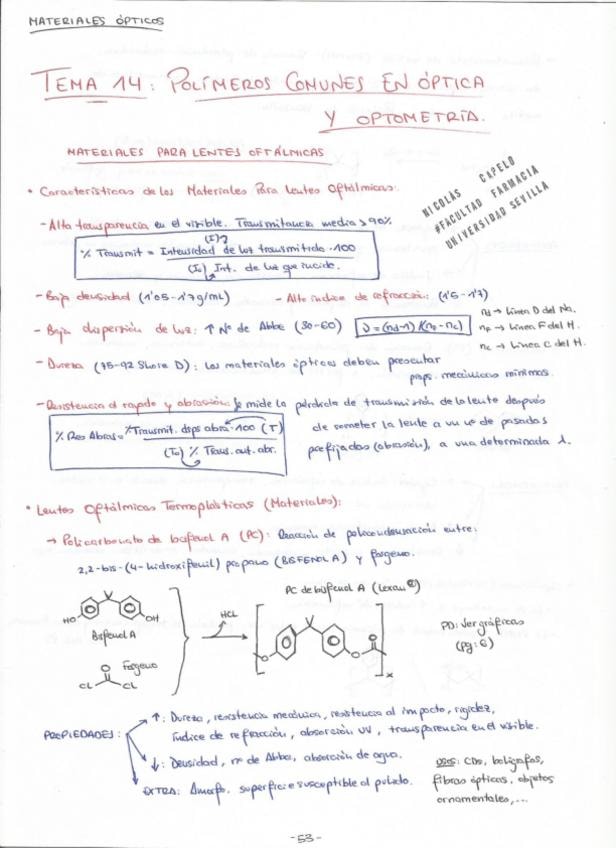 MATERIALES ÓPTICOS
TEMA 14: POLÍMEROS COMUNES EN ÓPTICA
Y OPTOMETRÍA.
MATERIALES PARA LENTES OFTÁLMICAS
• Características de los Materiales Para Lentes Oftálmicas:
NICOLÁS CAPELO
#FACULTAD FARMACIA
UNIVERSIDAD SEVILLA
- Alta transparencia en el visible. Transmitancia media > 90%
(I)
% Transmit = Intensidad de luz transmitida · 100
(I₀) Int. de luz que incide.
- Baja densidad (1'05-1'7g/mL) - Alto índice de refracción: (1'5-1'7)
- Baja dispersión de luz: ↑ Nº de Abbe (30-60) ν = (nd-1)/(nF-nc)
nd → Línea D del Na.
nF → Línea F del H.
nc → Línea C del H.
- Dureza (75-92 Shore D): Los materiales ópticos deben presentar
props. mecánicas mínimas.
- Resistencia al rayado y abrasión: Se mide la pérdida de transmisión de la lente después
de someter la lente a un nº de pasadas
prefijadas (abrasión), a una determinada λ.
% Res Abras = % Transmit. dsps abra · 100 (T)
(T₀) % Trans. ant. abr.
• Lentes Oftálmicas Termoplásticas (Materiales):
→ Policarbonato de bisfenol A (PC): Reacción de policondensación entre:
2,2-bis-(4-hidroxifenil) propano (BISFENOL A) y fosgeno.
PC de bisfenol A (Lexan®)
HO OH
Bisfenol A
HCL
O O O
x
PD: Ver gráficas
(pg: 6)
Fosgeno
O
CL CL
PROPIEDADES:
↑: Dureza, resistencia mecánica, resistencia al impacto, rigidez,
índice de refracción, absorción UV, transparencia en el visible.
↓: Densidad, nº de Abbe, absorción de agua.
EXTRA: Amorfo, superficie susceptible al pulido.
USOS: CDs, bolígrafos,
fibras ópticas, objetos
ornamentales,...
-53-